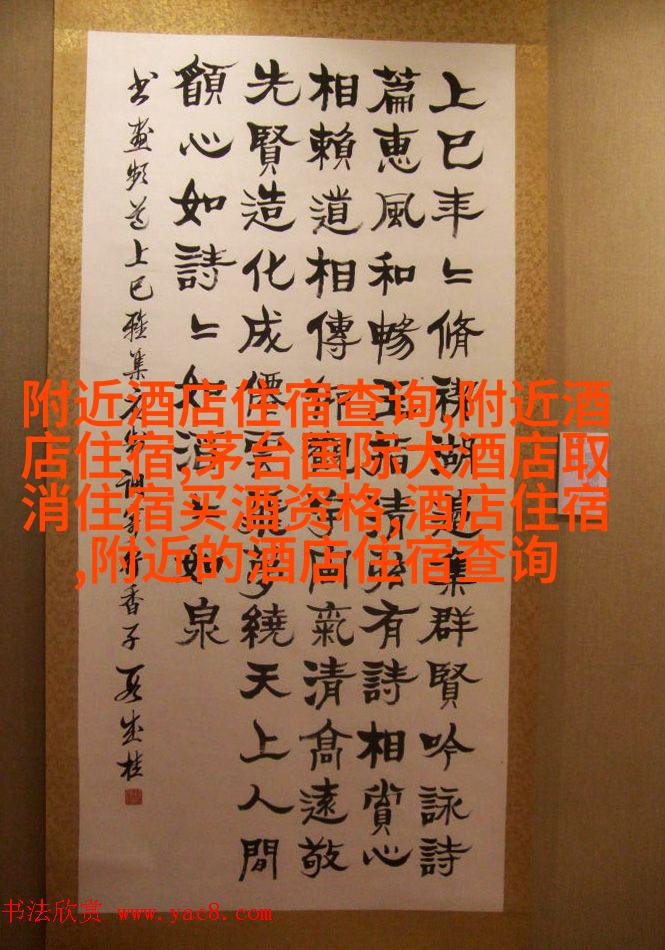 上巳年〻脩禊湖邊集群賢吟詠詩
篇惠風和暢有詩相賞心
相賴道相傳觀氣清高遠敬
先賢造化成僊雲夢繞天上人間
顧心如詩〻如酒〻如泉
书画频道上巳雅集香子成桂
附近酒店住宿查询,附近酒
店住宿,茅台国际大酒店取
消住宿买酒资格,酒店住宿
,附近的酒店住宿查询
书法欣赏 www.yac8.com